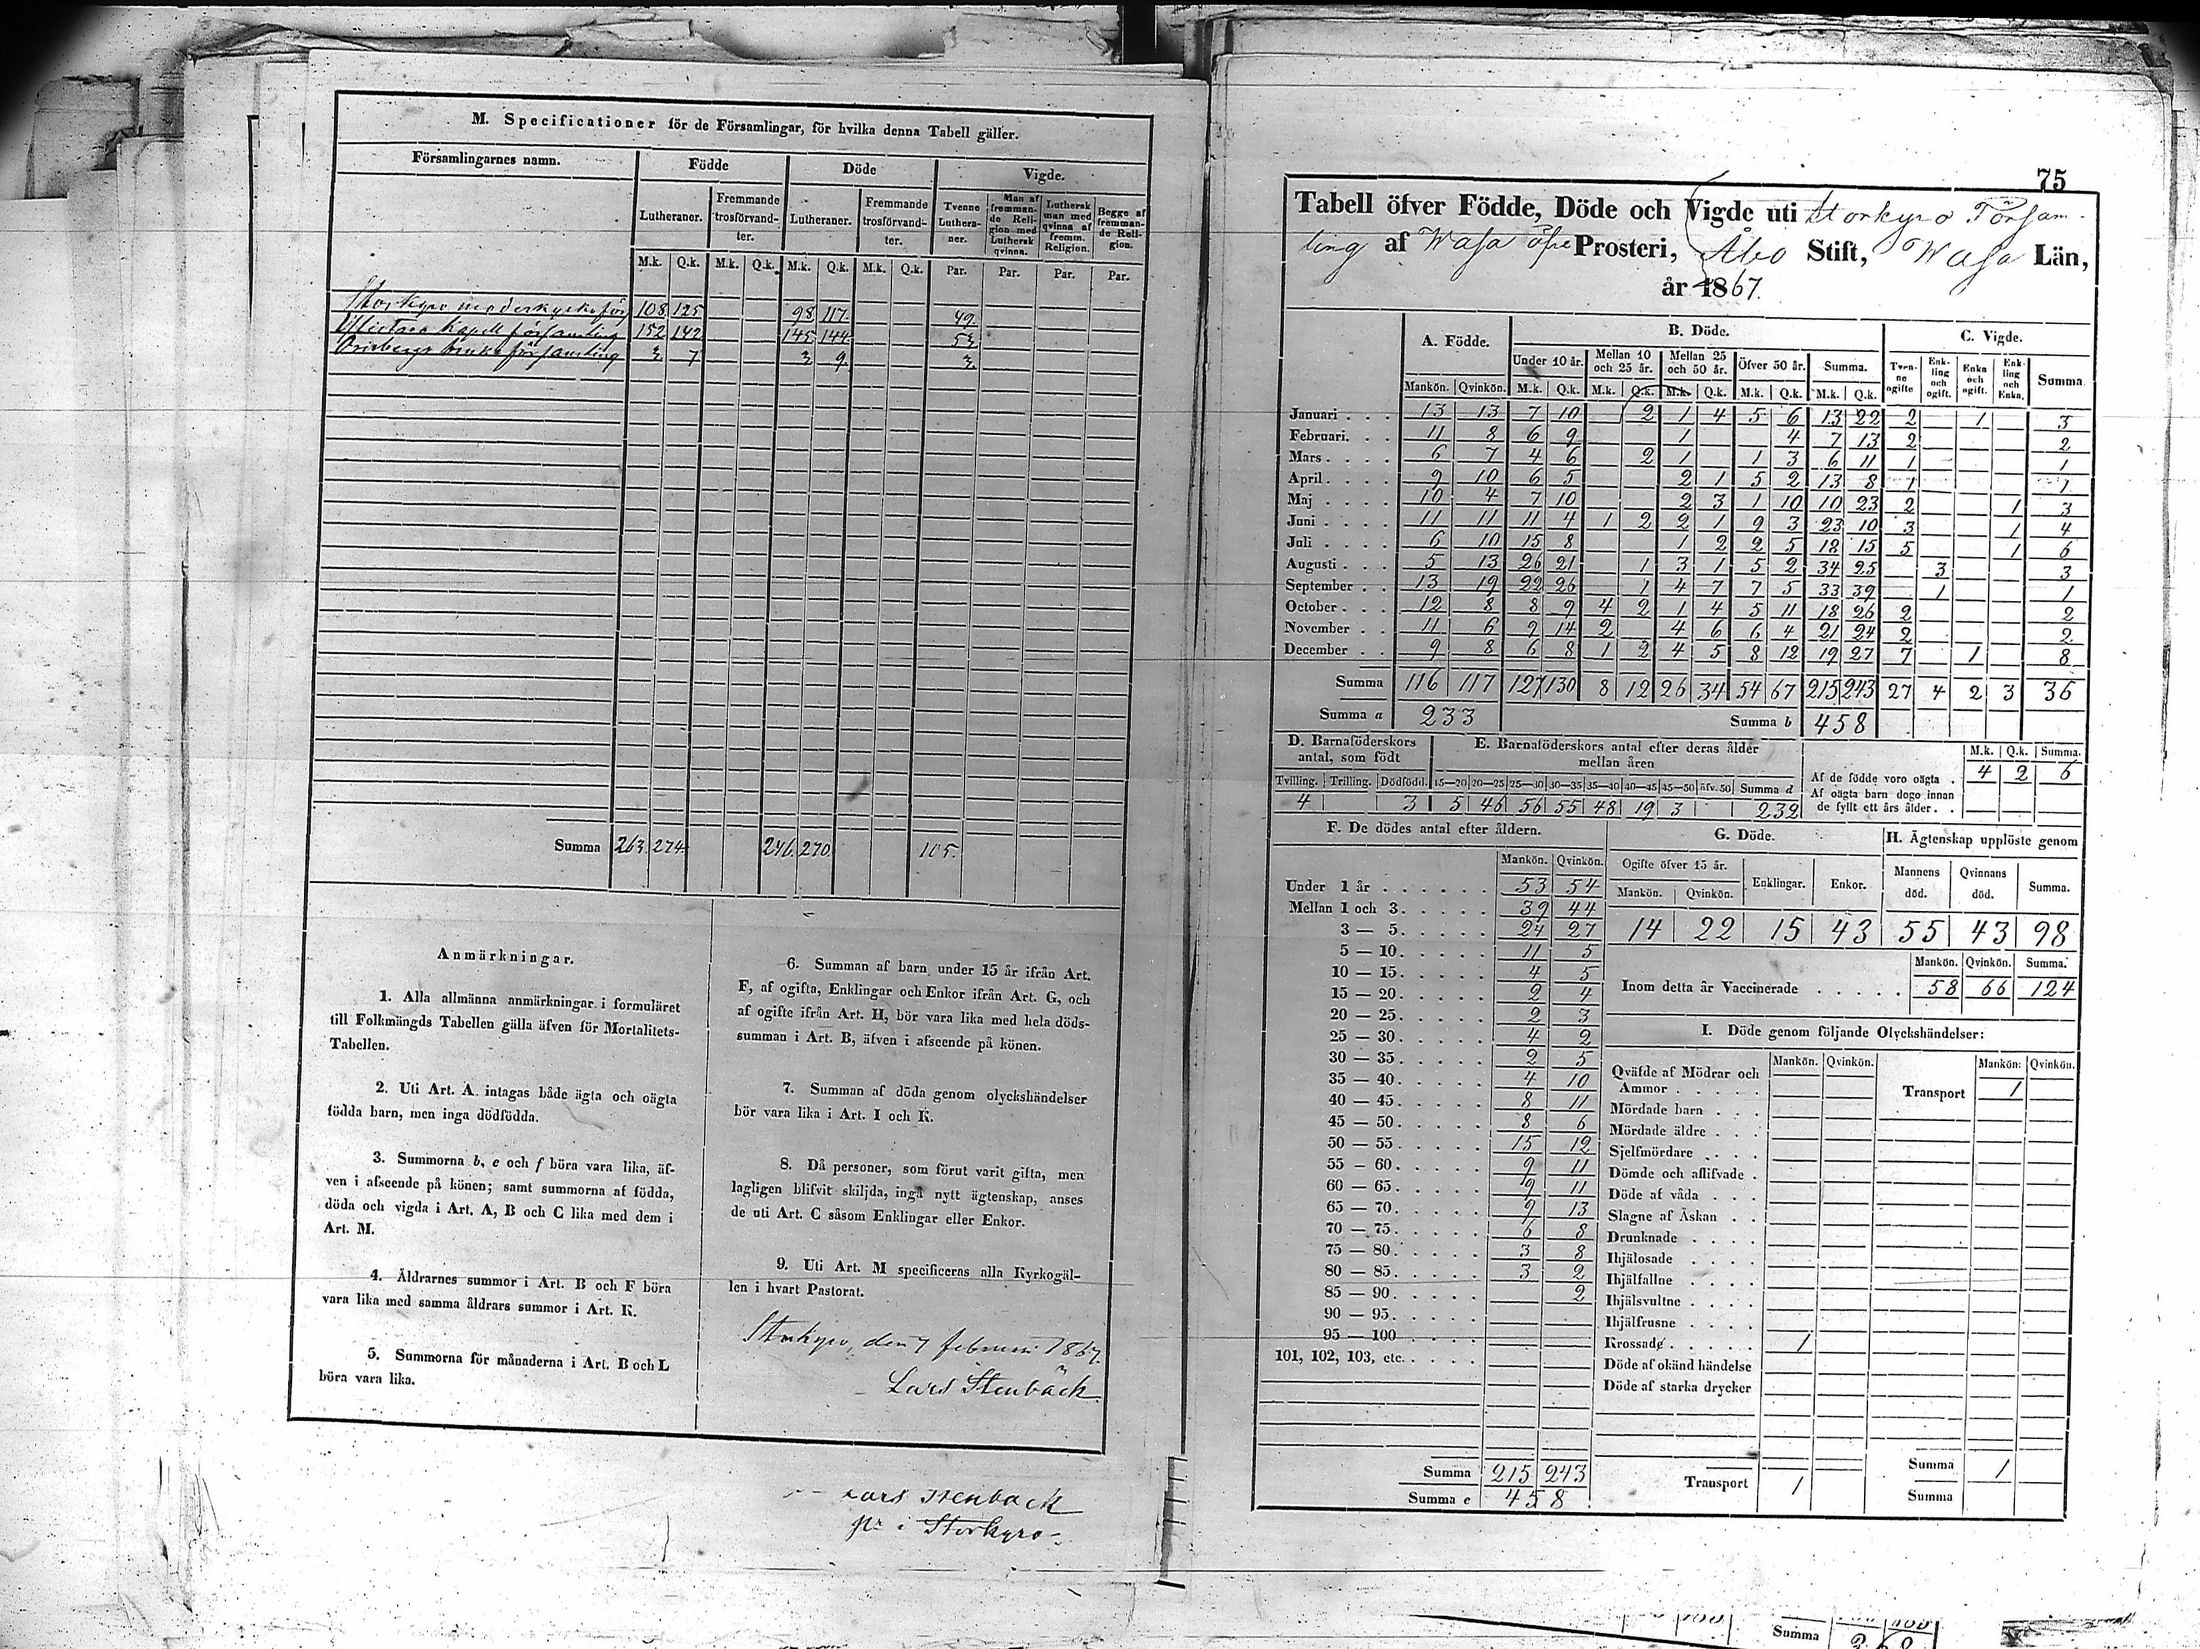 M. Specificationer för de Församlingar, för hvilka denna Tabell gäller.
Församlingarnes namn. Födde Döde Vigde.
Lutheraner. Fremmande trosförvandter. Lutheraner. Fremmande trosförvandter. Tvenne Lutheraner. Man af fremmande Religion med Luthersk qvinna. Luthersk man med qvinna af fremm. Religion. Begge af fremmande Religion.
M.k. Q.k. M.k. Q.k. M.k. Q.k. M.k. Q.k. Par. Par. Par. Par.
Storkyro moderkyrkoför 108 125 98 117 49
kapell församling 152 142 145 144 53
Orisbergs bruks församling 3 7 3 9 3
Summa 263 274 246 270 105.
Anmärkningar.
1. Alla allmänna anmärkningar i formuläret
till Folkmängds Tabellen gälla äfven för Mortalitets-
Tabellen.
2. Uti Art. A. intagas både ägta och oägta
födda barn, men inga dödfödda.
3. Summorna b, e och f böra vara lika, äf-
ven i afseende på könen; samt summorna af födda,
döda och vigda i Art. A, B och C lika med dem i
Art. M.
4. Åldrarnes summor i Art. B och F böra
vara lika med samma åldrars summor i Art. K.
5. Summorna för månaderna i Art. B och L
böra vara lika.
6. Summan af barn under 15 år ifrån Art.
F, af ogifta, Enklingar och Enkor ifrån Art. G, och
af ogifte ifrån Art. H, bör vara lika med hela döds-
summan i Art. B, äfven i afseende på könen.
7. Summan af döda genom olyckshändelser
bör vara lika i Art. I och K.
8. Då personer, som förut varit gifta, men
lagligen blifvit skiljda, ingå nytt ägtenskap, anses
de uti Art. C såsom Enklingar eller Enkor.
9. Uti Art. M specificeras alla Kyrkogäl-
len i hvart Pastorat.
Storkyro, den 7 februari 1867.
Lars Stenbäck
Lars Stenbäck
pr i Storkyro
75
Tabell öfver Födde, Döde och Vigde uti Storkyro Församling
af Wasa öfre Prosteri, Åbo Stift, Wasa Län,
år 1867.
A. Födde. B. Döde. C. Vigde.
Under 10 år. Mellan 10 och 25 år. Mellan 25 och 50 år. Öfver 50 år. Summa. Tvenne ogifte Enkling och ogift. Enka och ogift. Enkling och Enka. Summa
Mankön. Qvinkön. M.k. Q.k. M.k. Q.k. M.k. Q.k. M.k. Q.k. M.k. Q.k.
Januari . . . 13 13 7 10 2 1 4 5 6 13 22 2 1 3
Februari. . . 11 8 6 9 1 4 7 13 2 2
Mars . . . . 6 7 4 6 2 1 1 3 6 11 1 1
April . . . . 9 10 6 5 2 1 5 2 13 8 1 1
Maj . . . . 10 4 7 10 2 3 1 10 10 23 2 1 3
Juni . . . . 11 11 11 4 1 2 2 1 9 3 23 10 3 1 4
Juli . . . . 6 10 15 8 1 2 2 5 18 15 5 1 6
Augusti . . . 5 13 26 21 1 3 1 5 2 34 25 3 3
September . . 13 19 22 26 1 4 7 7 5 33 39 1 1
October . . . 12 8 8 9 4 2 1 4 5 11 18 26 2 2
November . . 11 6 9 14 2 4 6 6 4 21 24 2 2
December . . 9 8 6 8 1 2 4 5 8 12 19 27 7 1 8
Summa 116 117 127 130 8 12 26 34 54 67 215 243 27 4 2 3 36
Summa a 233 Summa b 458
D. Barnaföderskors antal, som födt
Tvilling. Trilling. Dödfödd.
4 3
E. Barnaföderskors antal efter deras ålder mellan åren
15—20 20—25 25—30 30—35 35—40 40—45 45—50 öfv. 50 Summa d
5 46 56 55 48 19 3 232
M.k. Q.k. Summa.
Af de födde voro oägta . 4 2 6
Af oägta barn dogo innan
de fyllt ett års ålder . .
F. De dödes antal efter åldern.
Mankön. Qvinkön.
Under 1 år . . . . . . 53 54
Mellan 1 och 3. . . . . 39 44
3 — 5. . . . . 24 27
5 — 10. . . . . 11 5
10 — 15. . . . . 4 5
15 — 20. . . . . 2 4
20 — 25. . . . . 2 3
25 — 30. . . . . 4 2
30 — 35. . . . . 2 5
35 — 40. . . . . 4 10
40 — 45. . . . . 8 11
45 — 50. . . . . 8 6
50 — 55. . . . . 15 12
55 — 60. . . . . 9 11
60 — 65. . . . . 9 11
65 — 70. . . . . 9 13
70 — 75. . . . . 6 8
75 — 80. . . . . 3 8
80 — 85. . . . . 3 2
85 — 90. . . . . 2
90 — 95. . . . .
95 — 100 . . . .
101, 102, 103, etc. . . . .
Summa 215 243
Summa e 458
G. Döde.
Ogifte öfver 15 år. Enklingar. Enkor.
Mankön. Qvinkön.
14 22 15 43
H. Ägtenskap upplöste genom
Mannens död. Qvinnans död. Summa.
55 43 98
Mankön. Qvinkön. Summa.
Inom detta år Vaccinerade . . . . . 58 66 124
I. Döde genom följande Olyckshändelser:
Mankön. Qvinkön. Mankön: Qvinkön.
Qväfde af Mödrar och
Ammor . . . . . Transport 1
Mördade barn . . .
Mördade äldre . . .
Sjelfmördare . . . .
Dömde och aflifvade .
Döde af våda . . .
Slagne af Åskan . .
Drunknade . . . .
Ihjälosade . . . .
Ihjälfallne . . . .
Ihjälsvultne . . . .
Ihjälfrusne . . . .
Krossade . . . . . 1
Döde af okänd händelse
Döde af starka drycker
Transport 1 Summa 1
Summa
Summa